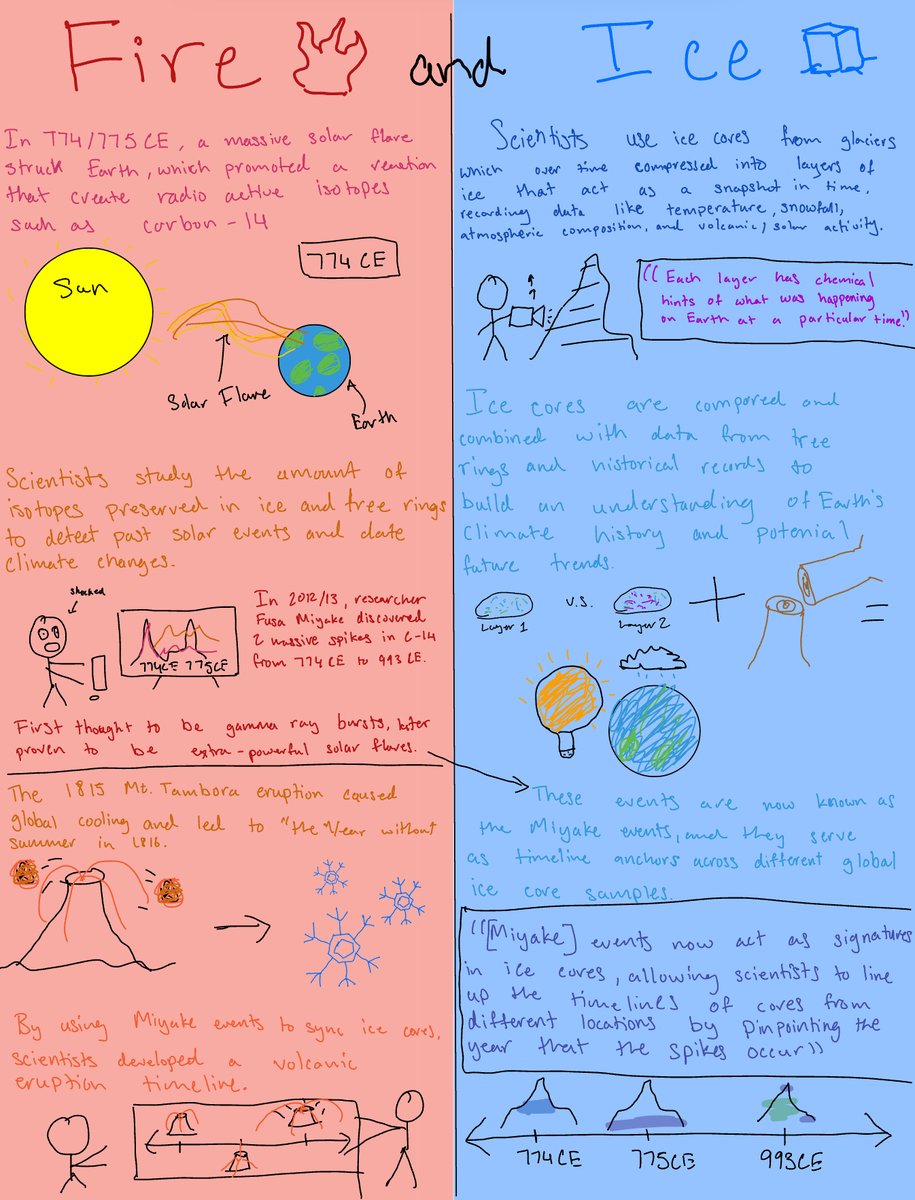 Fire and Ice
In 774/775 CE, a massive solar flare
struck Earth, which promoted a reaction
that create radio active isotopes
such as carbon-14
774 CE
Sun
Solar Flare
Earth
Scientists study the amount of
isotopes preserved in ice and tree rings
to detect past solar events and date
climate changes.
shocked
774CE 775CE
In 2012/13, researcher
Fusa Miyake discovered
2 massive spikes in C-14
from 774 CE to 993 CE.
First thought to be gamma ray bursts, later
proven to be extra-powerful solar flares.
The 1815 Mt. Tambora eruption caused
global cooling and led to "the Year without
summer in 1816.
By using Miyake events to sync ice cores,
scientists developed a volcanic
eruption timeline.
Scientists use ice cores from glaciers
which over time compressed into layers of
ice that act as a snapshot in time,
recording data like temperature, snowfall,
atmospheric composition, and volcanic/solar activity.
"Each layer has chemical
hints of what was happening
on Earth at a particular time."
Ice cores are compared and
combined with data from tree
rings and historical records to
build an understanding of Earth's
climate history and potenial
future trends.
Layer 1
v.s.
Layer 2
These events are now known as
the Miyake events, and they serve
as timeline anchors across different global
ice core samples.
"[Miyake] events now act as signatures
in ice cores, allowing scientists to line
up the timelines of cores from
different locations by pinpointing the
year that the spikes occur"
774CE 775CE 993CE